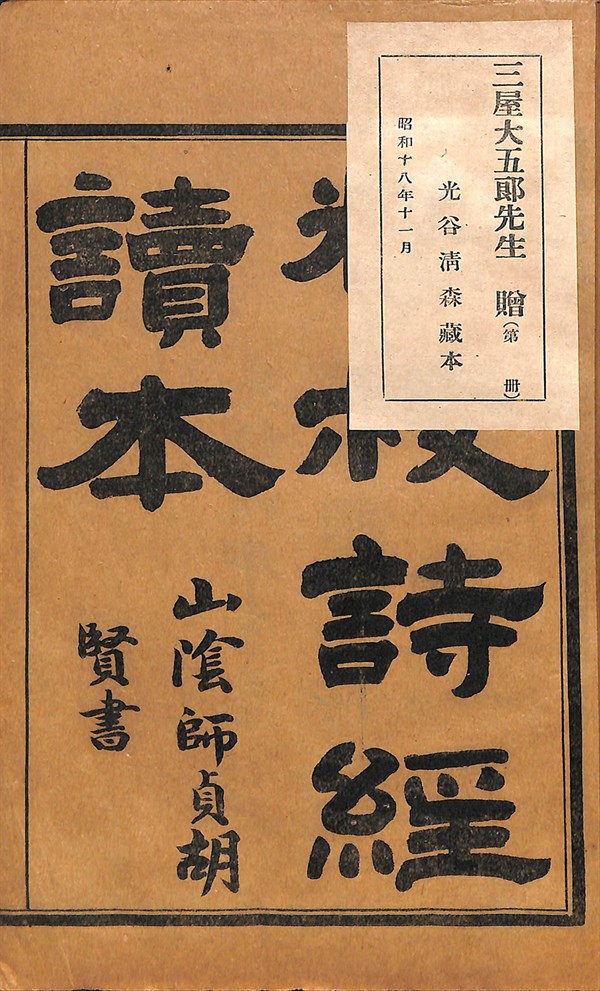 三屋大五郎先生 贈(第 册)
光谷清森藏本
昭和十八年十一月
詩經
讀本
山陰師貞胡
賢書